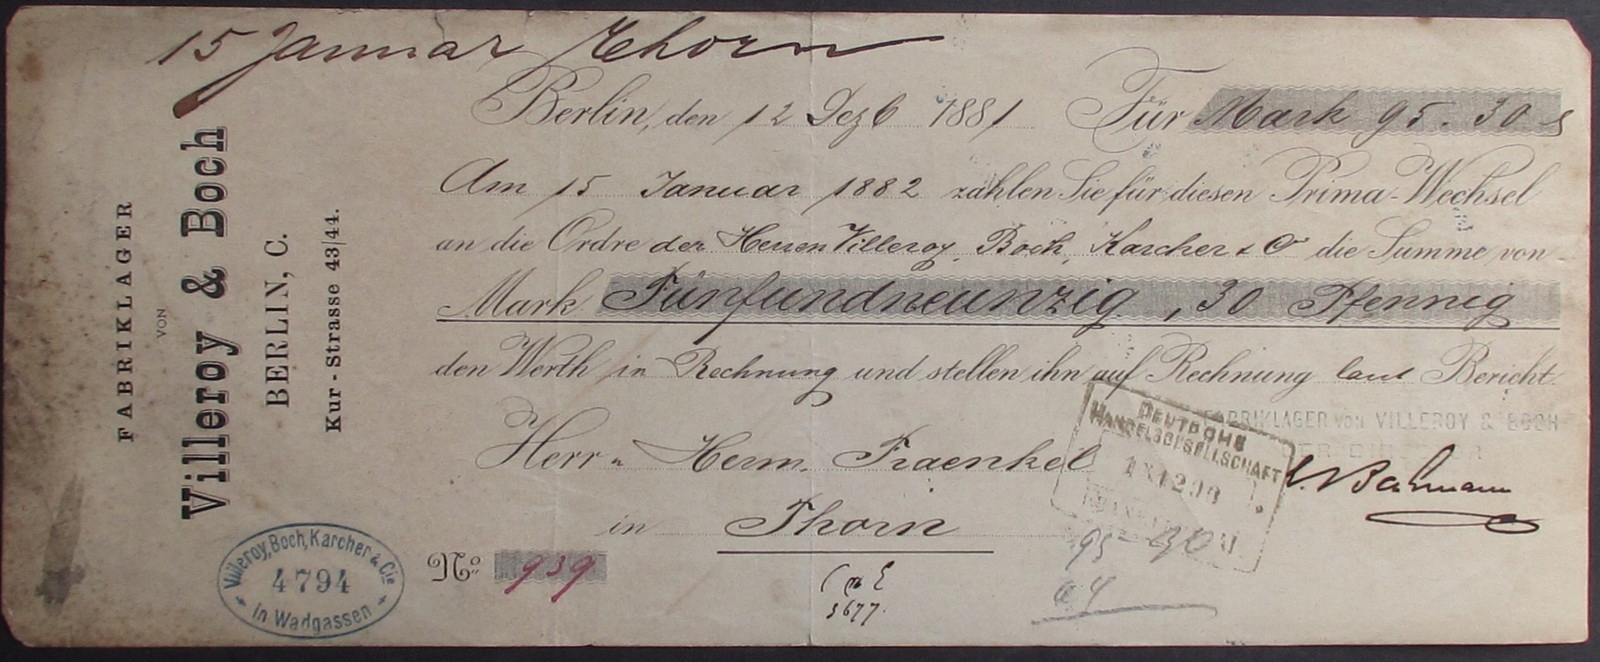 15 Januar Thorn
Berlin, den 12 Dezb 1881 Für Mark 95.30
Am 15 Januar 1882 zahlen Sie für diesen Prima-Wechsel
an die Ordre der Herren Villeroy, Boch, Karcher & Co die Summe von
Mark Fünfundneunzig, 30 Pfennig
den Werth in Rechnung und stellen ihn auf Rechnung laut Bericht.
Herrn Herm. Fraenkel
in Thorn
No. 939
FABRIKLAGER
VON
Villeroy & Boch
BERLIN, C.
Kur-Strasse 43/44.
Villeroy, Boch, Karcher & Cie
4794
in Wadgassen
DEUTSCHE
HANDELSGESELLSCHAFT
FABRIKLAGER VON VILLEROY & BOCH
DER DIRECTOR
3677.
95 30
64